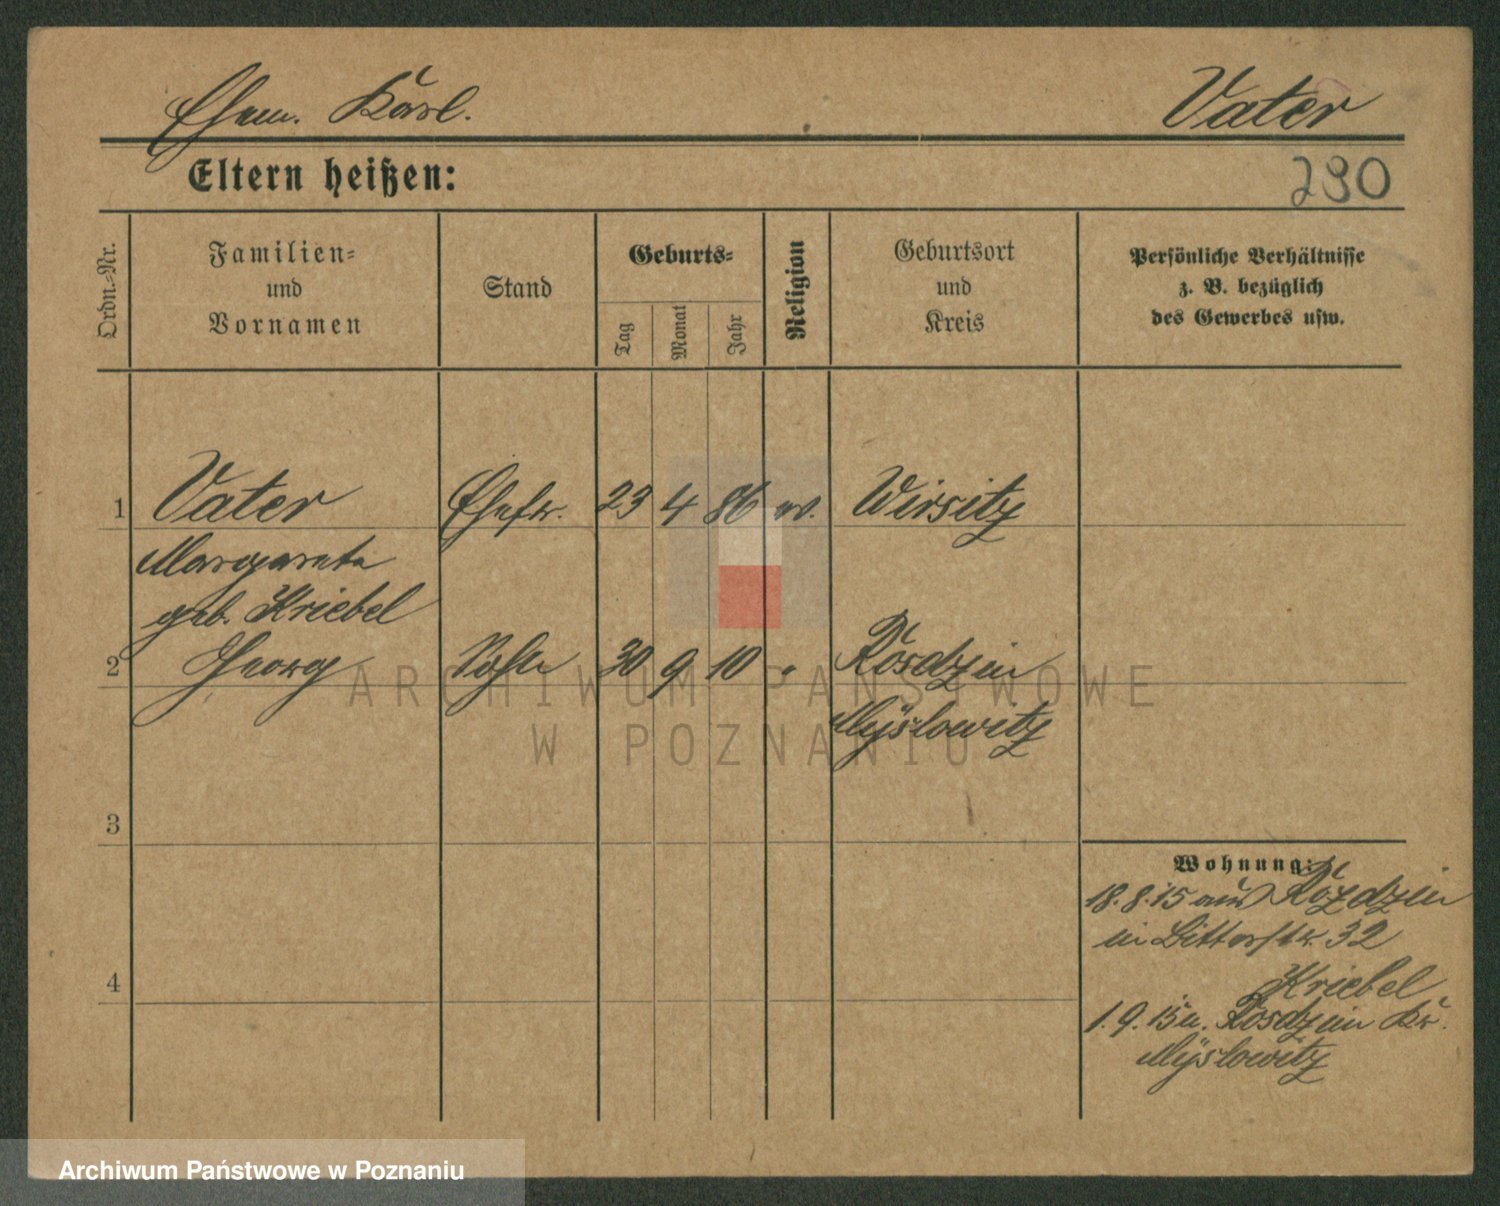 Ehem. Karl.
Vater
Eltern heißen:
290
Ordn.-Nr.
Familien-
und
Vornamen
Stand
Geburts-
Tag
Monat
Jahr
Religion
Geburtsort
und
Kreis
Persönliche Verhältnisse
z. B. bezüglich
des Gewerbes usw.
1 Vater Ehefr. 23 4 86 ev. Wirsitz
Margarete
geb. Kriebel
2 Georg Sohn 30 9 10 " Rosdzin
Myslowitz
3
4
Wohnung:
18.8.15 aus Rozdzin
in Bitterstr. 32
Kriebel
1.9.15 n. Rosdzin Kr.
Myslowitz
ARCHIWUM PAŃSTWOWE
W POZNANIU
Archiwum Państwowe w Poznaniu